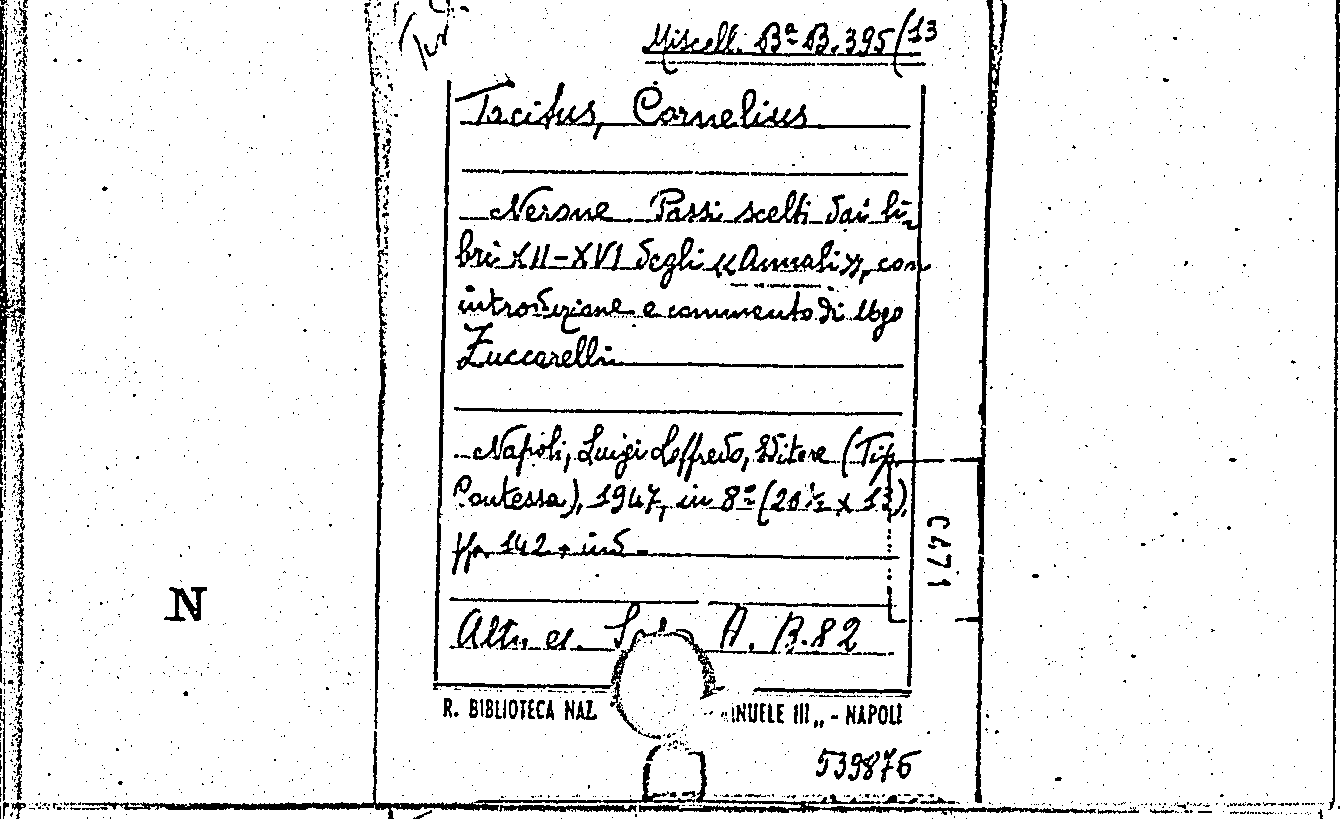 Miscell. Bª B. 395/13
Tacitus, Cornelius
Nerone Passi scelti dai li-
bri XII-XVI degli «Annali», con
introduzione e commento di Ugo
Zuccarelli
Napoli, Luigi Loffredo, Editore (Tip.
Contessa), 1947, in 8º (20½ x 13),
pp. 142 + ind.
C471
N
Altr. es. A. B. 82
R. BIBLIOTECA NAZ. NUELE III„ - NAPOLI
539876